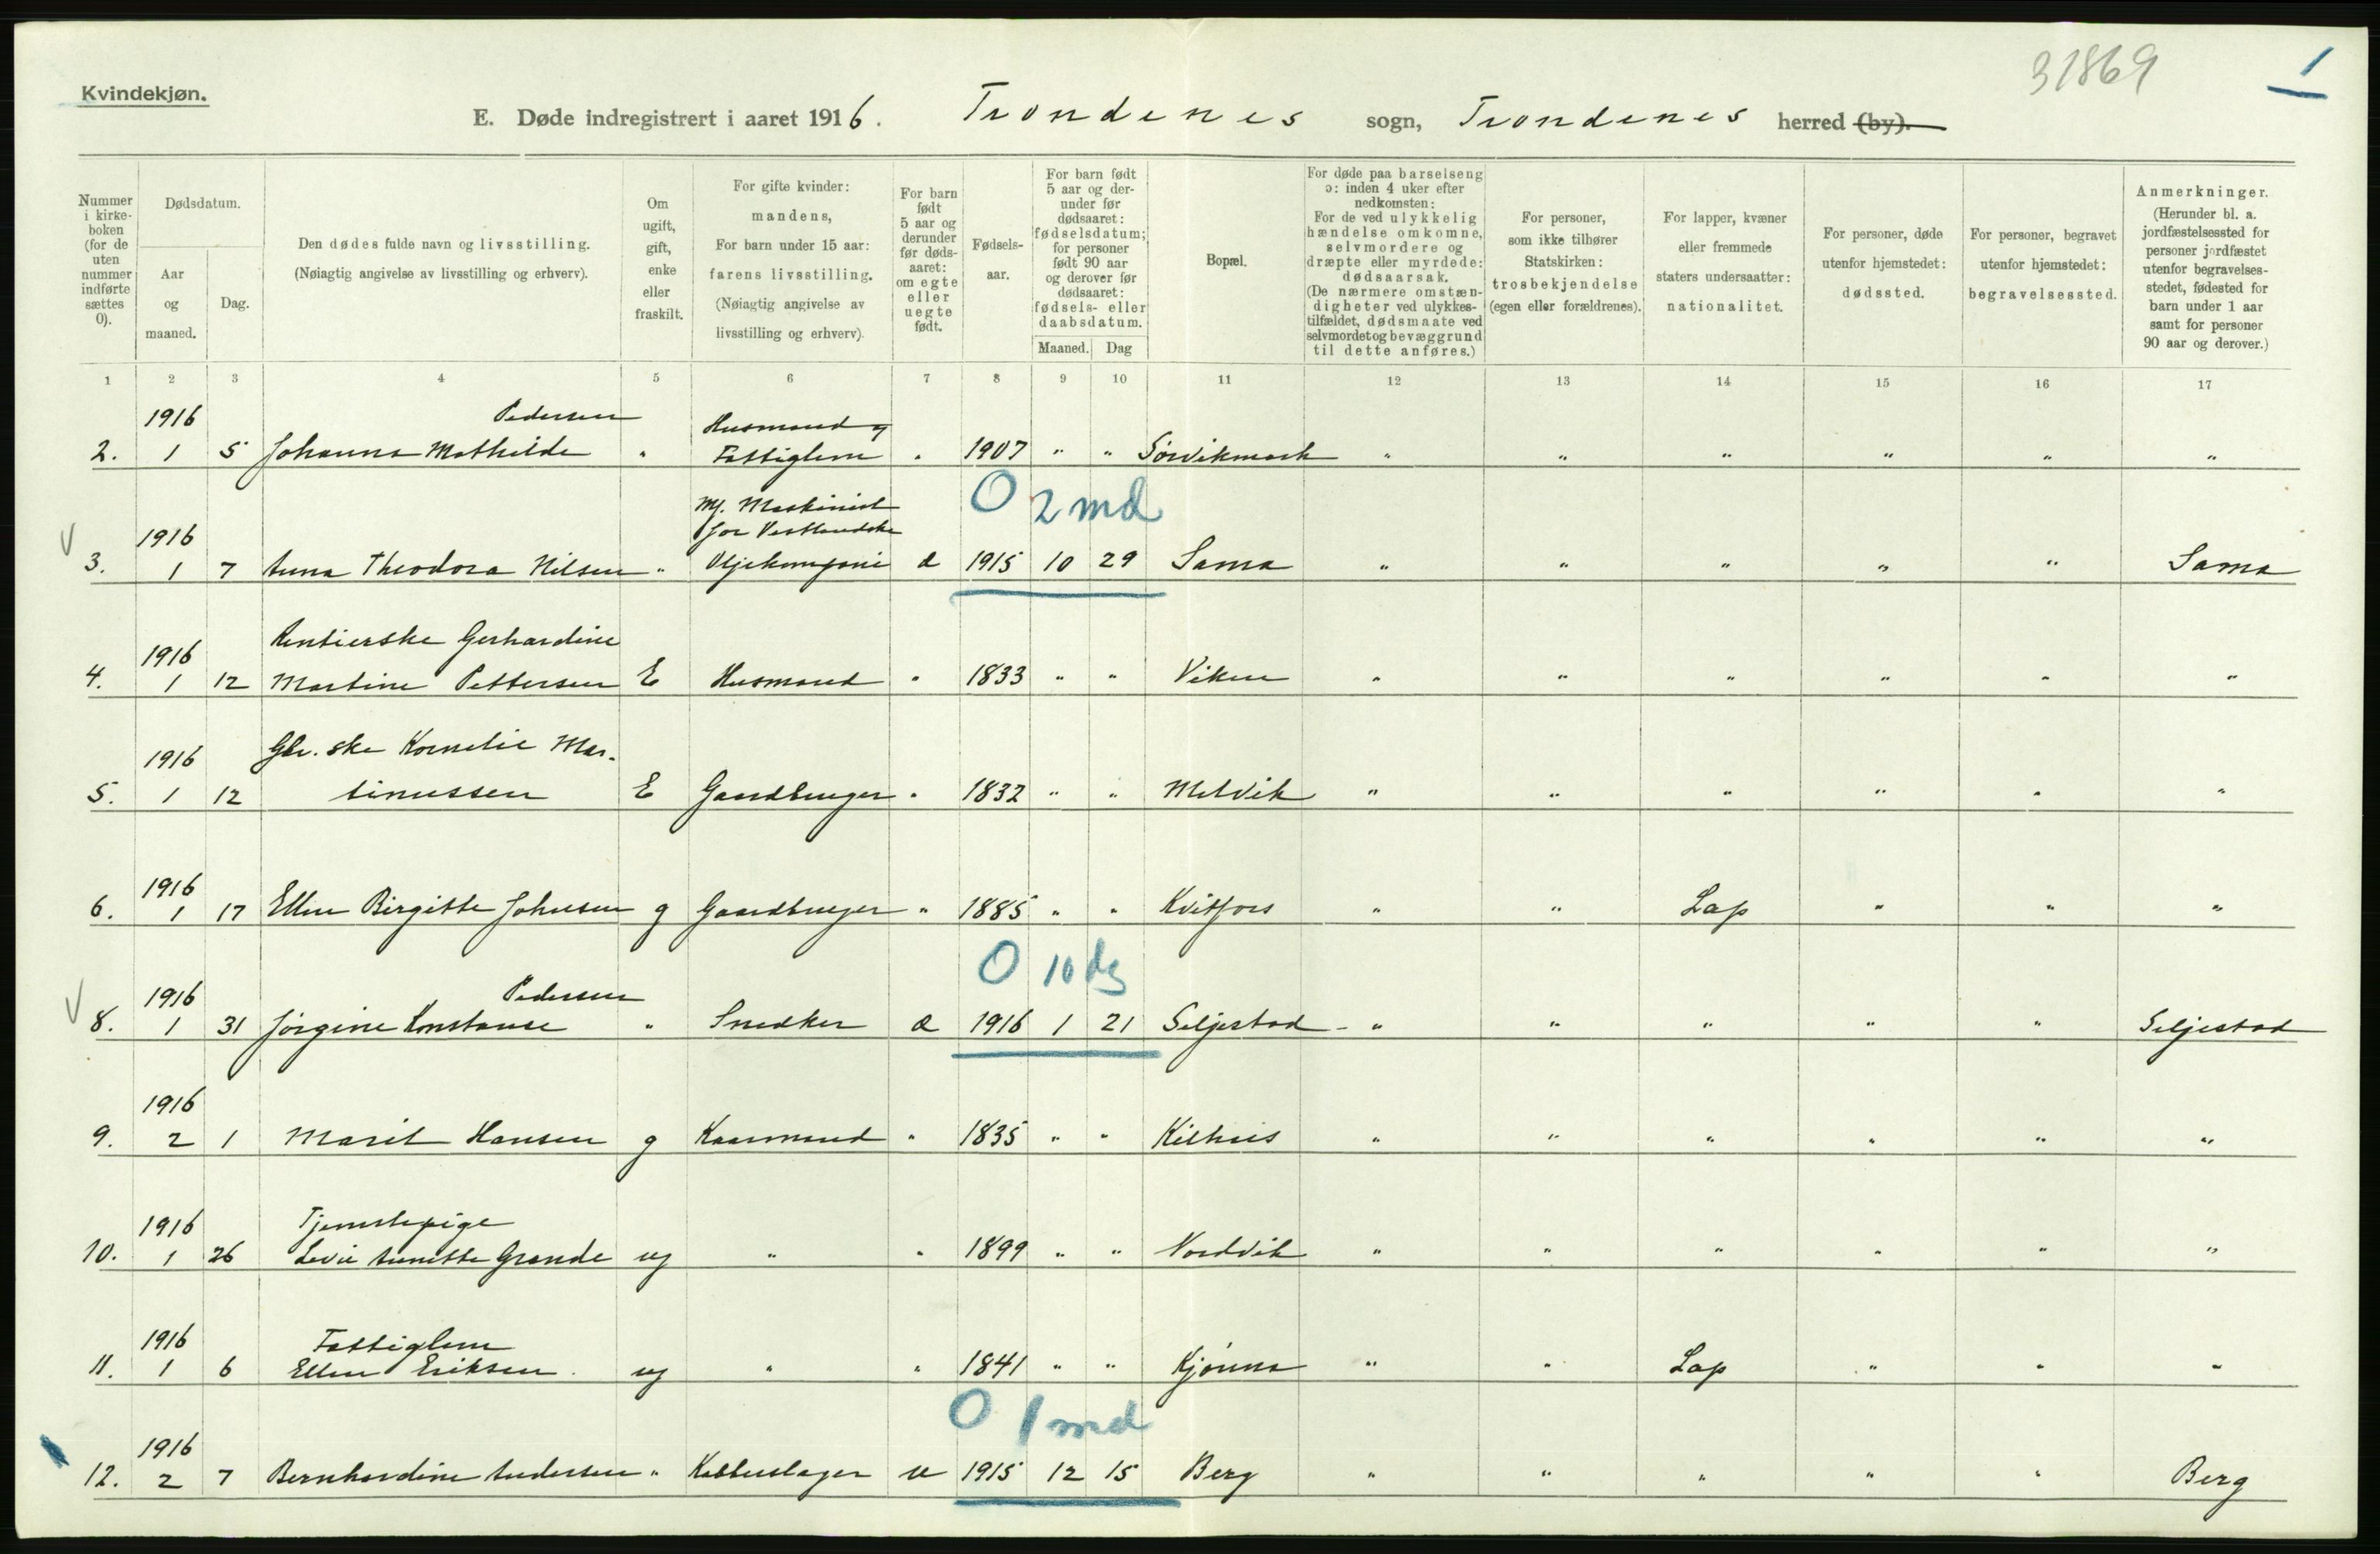 31869
1
Kvindekjøn.
E. Døde indregistrert i aaret 1916. Trondenes sogn, Trondenes herred (by).
Nummer i kirkeboken (for de uten nummer indførte sættes 0).
Dødsdatum.
Aar og maaned.
Dag.
Den dødes fulde navn og livsstilling.
(Nøiagtig angivelse av livsstilling og erhverv).
Om ugift, gift, enke eller fraskilt.
For gifte kvinder: mandens,
For barn under 15 aar: farens livsstilling.
(Nøiagtig angivelse av livsstilling og erhverv).
For barn født 5 aar og derunder før dødsaaret: om egte eller uegte født.
Fødselsaar.
For barn født 5 aar og derunder før dødsaaret: fødselsdatum; for personer født 90 aar og derover før dødsaaret: fødsels- eller daabsdatum.
Maaned. Dag
Bopæl.
For døde paa barselseng ɔ: inden 4 uker efter nedkomsten:
For de ved ulykkelig hændelse omkomne, selvmordere og dræpte eller myrdede: dødsaarsak.
(De nærmere omstændigheter ved ulykkestilfældet, dødsmaate ved selvmordet og bevæggrund til dette anføres.)
For personer, som ikke tilhører Statskirken: trosbekjendelse (egen eller forældrenes).
For lapper, kvæner eller fremmede staters undersaatter: nationalitet.
For personer, døde utenfor hjemstedet: dødssted.
For personer, begravet utenfor hjemstedet: begravelsessted.
Anmerkninger.
(Herunder bl. a. jordfæstelsessted for personer jordfæstet utenfor begravelsesstedet, fødested for barn under 1 aar samt for personer 90 aar og derover.)
1 2 3 4 5 6 7 8 9 10 11 12 13 14 15 16 17
1916 Pedersen Husmand og
2. 1 5 Johanna Mathilde " Fattiglem " 1907 " " Sørvikmark " " " " " "
O 2 md
Mf. Maskinist
1916 for Vestlandske
V 3. 1 7 Anna Theodora Nilsen " Oljekompani d 1915 10 29 Sama " " " " " Sama
1916 Rentierske Gerhardine
4. 1 12 Martine Pettersen E Husmand " 1833 " " Viken " " " " " "
1916 Gbr.ske Kornelie Mar-
5. 1 12 tinussen E Gaardbruger " 1832 " " Melvik " " " " " "
1916
6. 1 17 Ellen Birgitte Johnsen g Gaardbruger " 1885 " " Kvitfors " " Lap " " "
O 10 dg
1916 Pedersen
V 8. 1 31 Jørgine Konstanse " Snedker 1916 1 21 Seljestad " " " " " Seljestad
1916
9. 2 1 Marit Hansen g Kaarmand " 1835 " " Kilhus " " " " " "
1916 Tjenstepige
10. 1 26 Annette Grande ug " " 1899 " " Nordvik " " " " " "
1916 Fattiglem
11. 1 6 Ellen Eriksen ug " " 1841 " " Kjønna " " Lap " " "
O 1 md
1916
12. 2 7 Bernhardine Andersen " u 1915 12 15 Berg " " " " " Berg